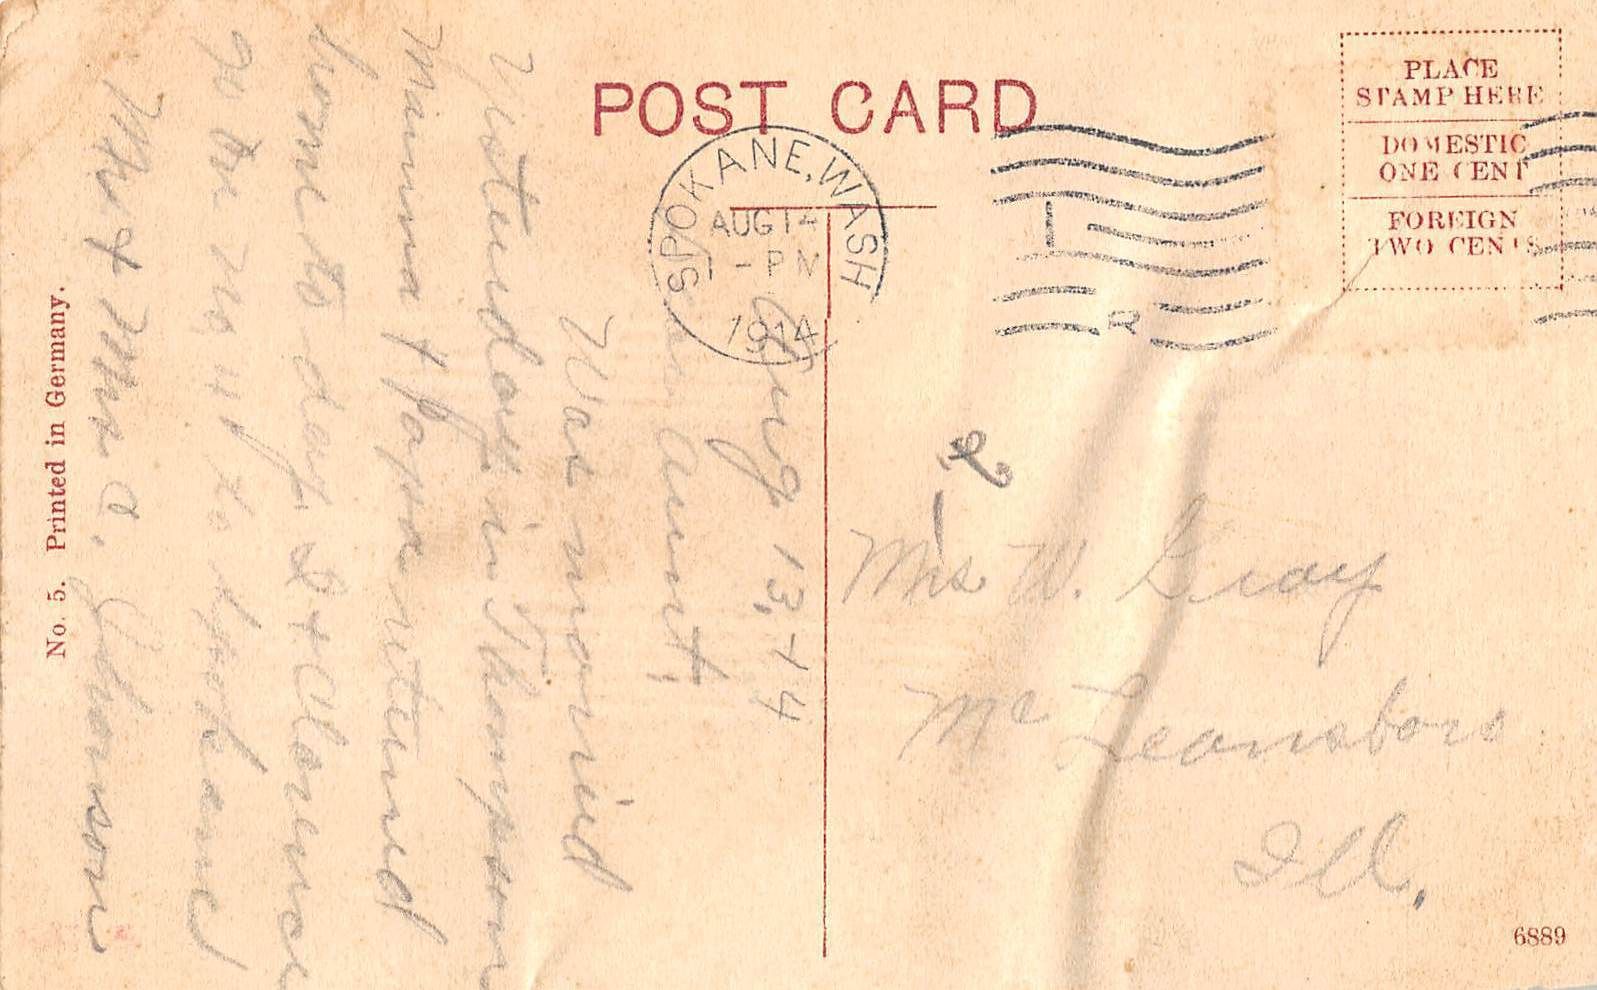 POST CARD
PLACE
STAMP HERE
DOMESTIC
ONE CENT
FOREIGN
TWO CENTS
SPOKANE, WASH
AUG 14
-PM
1914
Aug 13, -14
Dear Aunt:
Was married
Yesterday in Thompson
Mamma & Papa returned
home to day. I & Clarence
go on to
Spokane
Mr & Mrs C. Johnson
2
Mrs W. Gray
Mc Leansboro
Ill.
No. 5. Printed in Germany.
6889